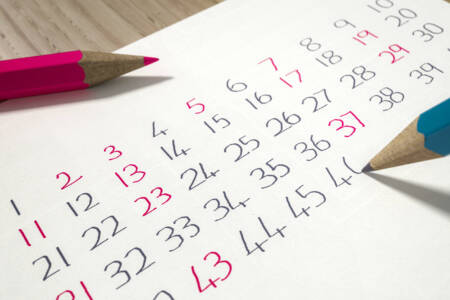 1 2 3 4 5 6 7 8 9 10
11 12 13 14 15 16 17 18 19 20
21 22 23 24 25 26 27 28 29 30
31 32 33 34 35 36 37 38 39
43 44 45 4